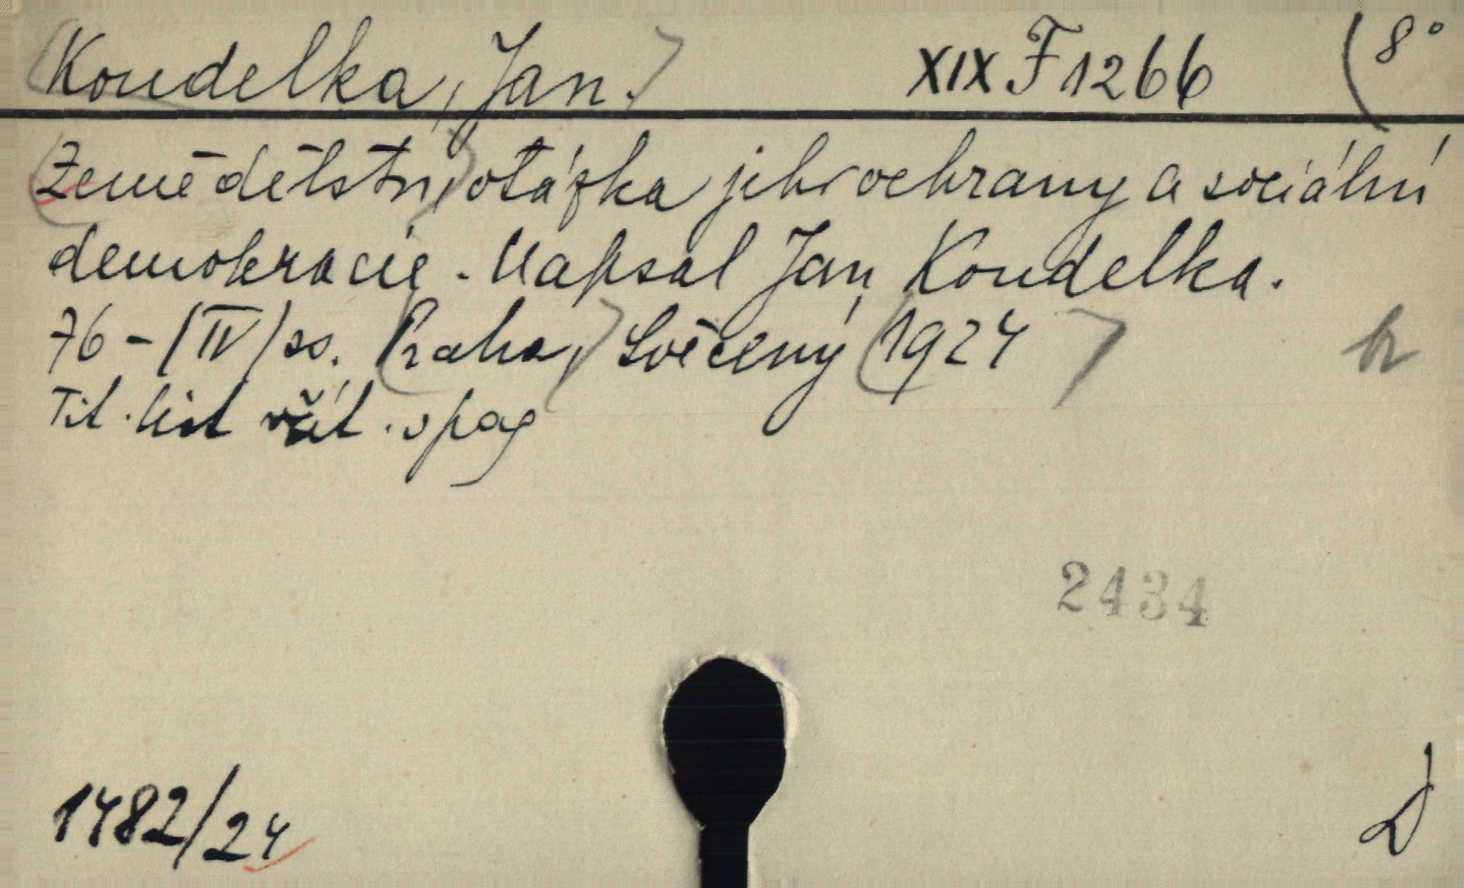 Koudelka, Jan. XIX F 1266 (8°
Zemědělství, otázka jeho ochrany a sociální
demokracie. Napsal Jan Koudelka.
76 - (IV) ss. Praha, Svěcený 1924
Tit. list včít. v pag
2434
1482/24
D